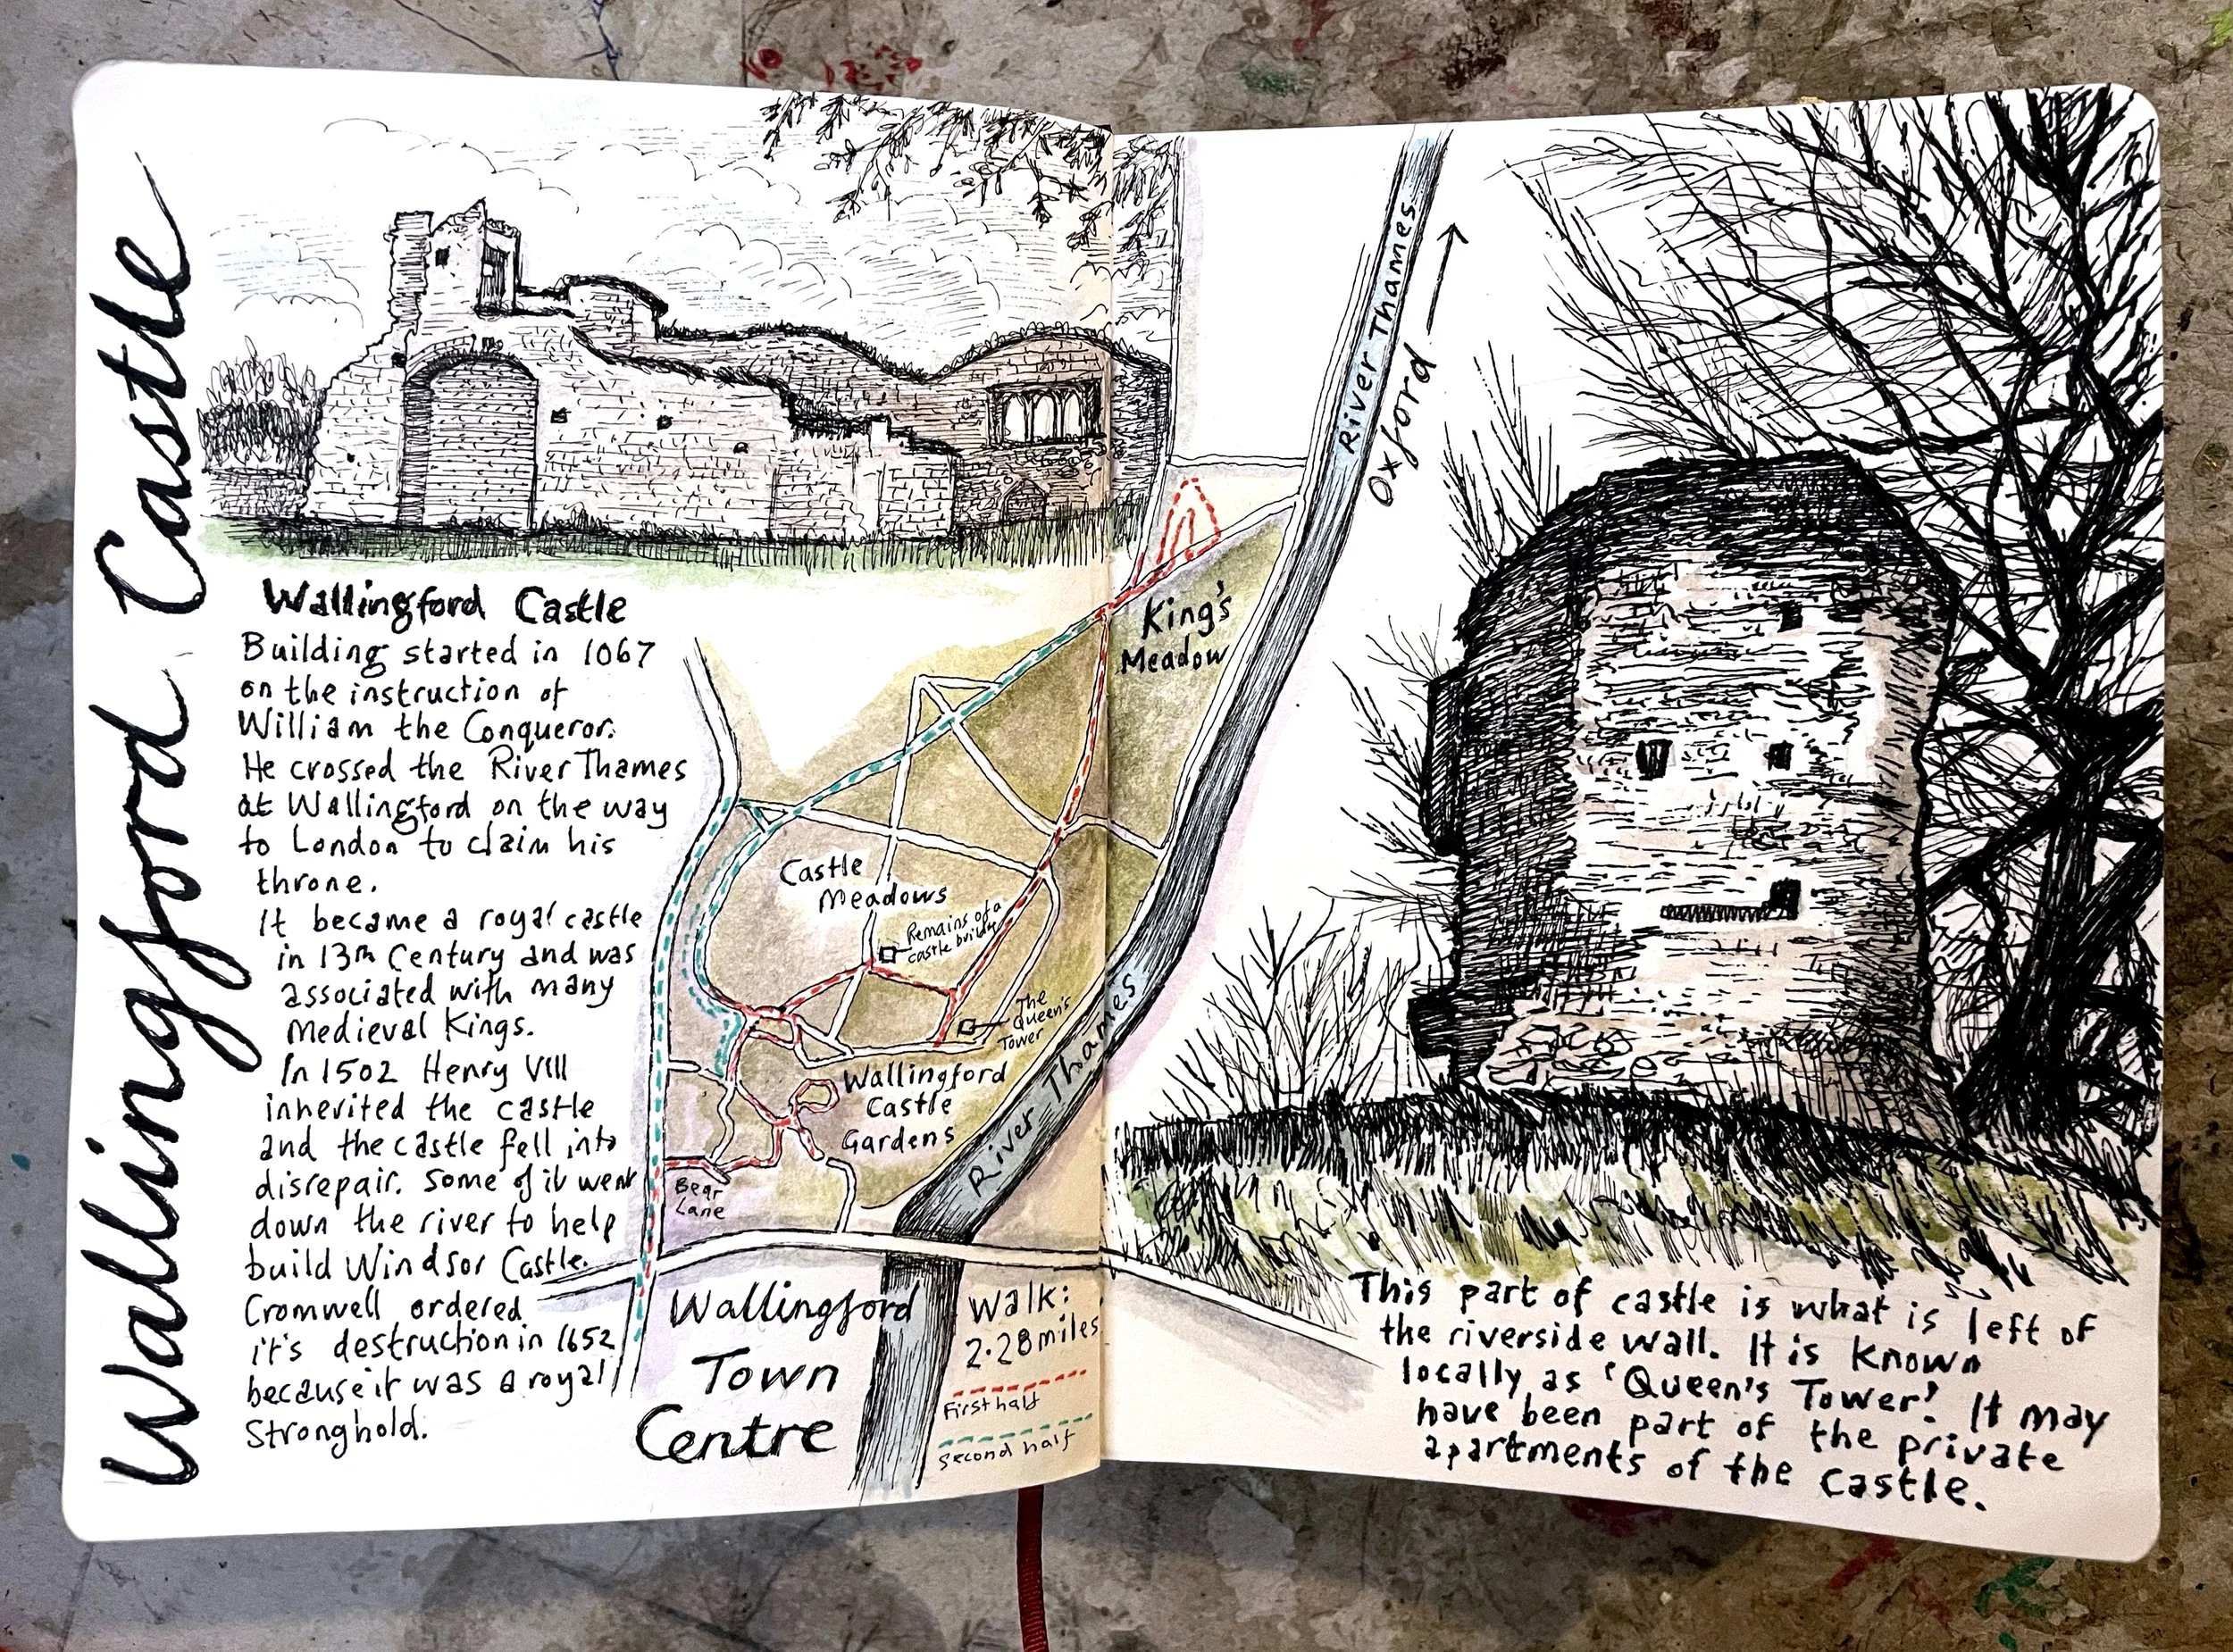 Wallingford Castle
Wallingford Castle
Building started in 1067
on the instruction of
William the Conqueror.
He crossed the River Thames
at Wallingford on the way
to London to claim his
throne.
It became a royal castle
in 13th Century and was
associated with many
Medieval Kings.
In 1502 Henry VIII
inherited the castle
and the castle fell into
disrepair. Some of it went
down the river to help
build Windsor Castle.
Cromwell ordered
it's destruction in 1652
because it was a royal
Stronghold.
River Thames
Oxford
King's
Meadow
Castle
Meadows
Remains of a
castle building
The
Queen's
Tower
Wallingford
Castle
Gardens
River Thames
Bear
Lane
Wallingford
Town
Centre
Walk:
2.28 miles
First half
Second half
This part of castle is what is left of
the riverside wall. It is known
locally as 'Queen's Tower'. It may
have been part of the private
apartments of the castle.